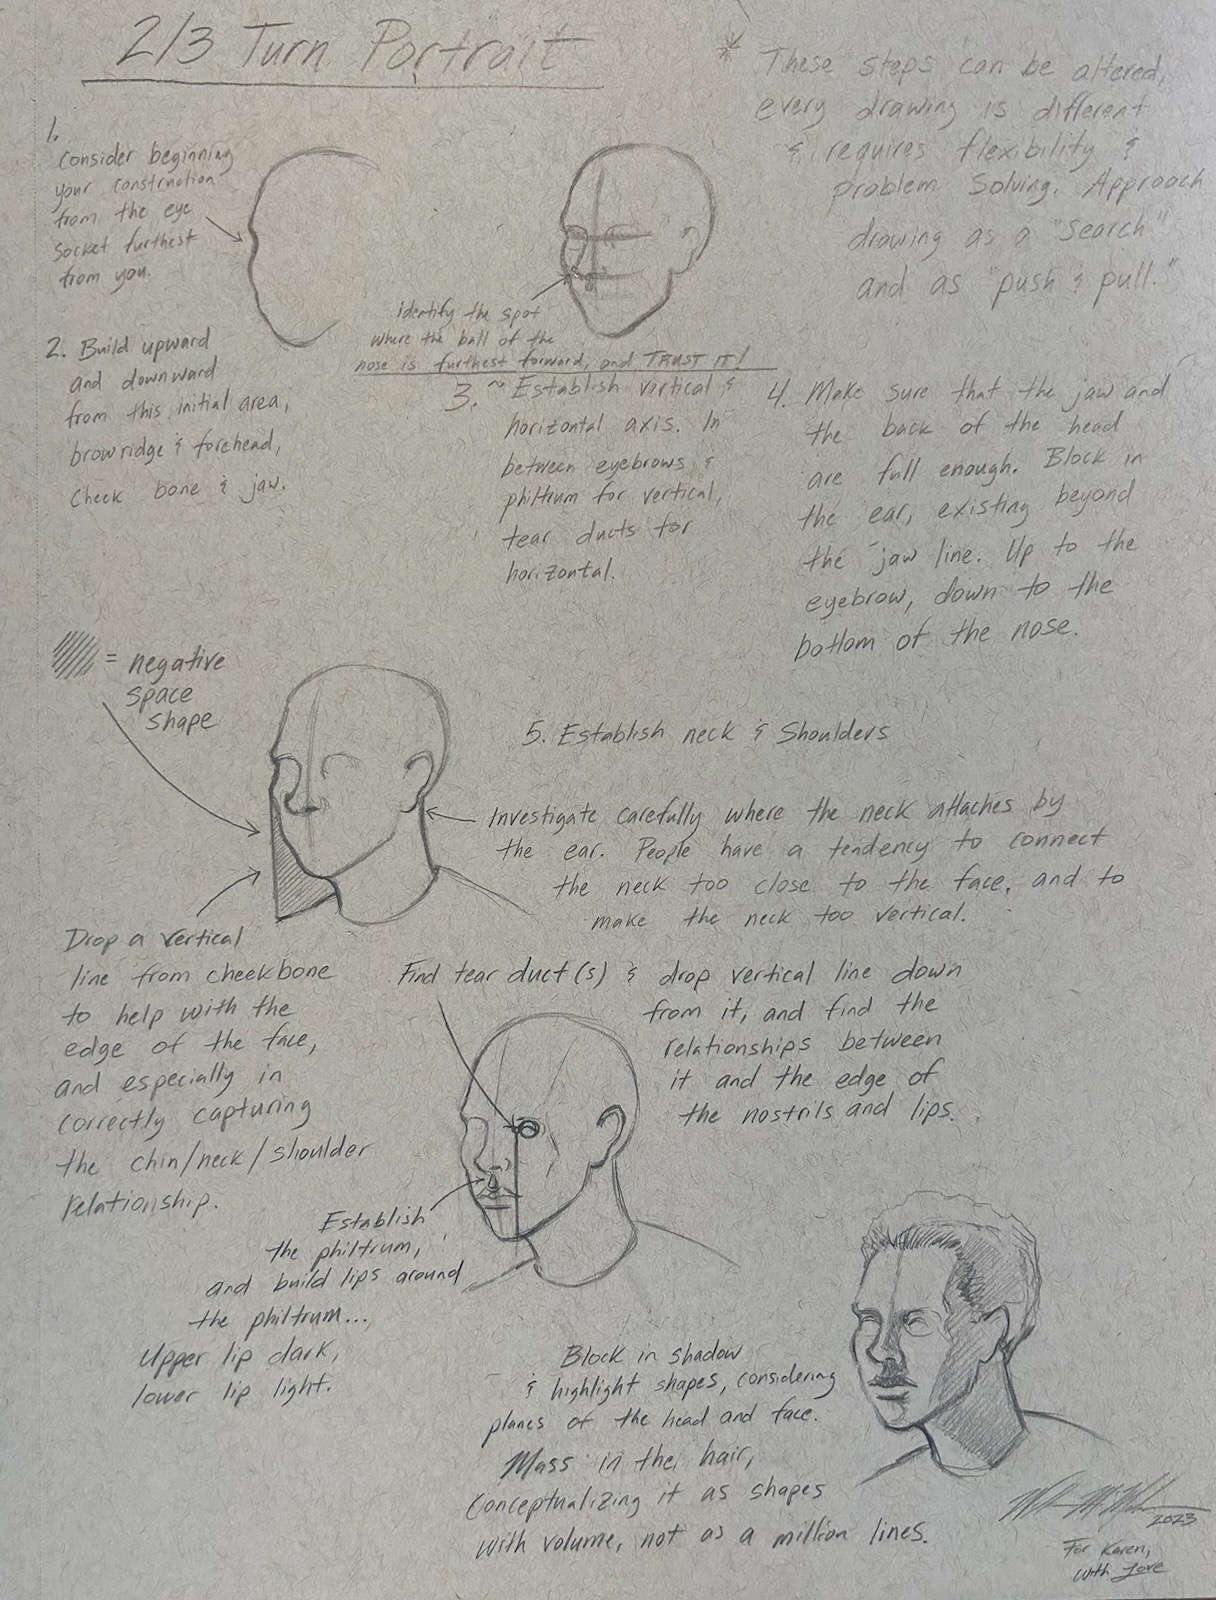 2/3 Turn Portrait
* These steps can be altered,
every drawing is different
& requires flexibility &
problem solving. Approach
drawing as a "search"
and as "push & pull."
1.
Consider beginning
your construction
from the eye
socket furthest
from you.
identify the spot
where the ball of the
nose is furthest forward, and TRUST IT!
2. Build upward
and downward
from this initial area,
browridge & forehead,
Cheek bone & jaw.
3. ~ Establish virtical &
horizontal axis. In
between eyebrows &
philtrum for vertical,
tear ducts for
horizontal.
4. Make sure that the jaw and
the back of the head
are full enough. Block in
the ear, existing beyond
the jaw line. Up to the
eyebrow, down to the
bottom of the nose.
= negative
space
shape
5. Establish neck & Shoulders
Investigate carefully where the neck attaches by
the ear. People have a tendency to connect
the neck too close to the face, and to
make the neck too vertical.
Drop a vertical
line from cheekbone
to help with the
edge of the face,
and especially in
correctly capturing
the chin/neck/shoulder
relationship.
Find tear duct(s) & drop vertical line down
from it, and find the
relationships between
it and the edge of
the nostrils and lips.
Establish
the philtrum,
and build lips around
the philtrum...
Upper lip dark,
lower lip light.
Block in shadow
& highlight shapes, considering
planes of the head and face.
Mass in the hair,
conceptualizing it as shapes
with volume, not as a million lines.
2023
For Karen,
With Love